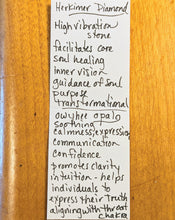 Herkimer Diamond
High vibration
stone
facilitates core
soul healing
Inner vision
guidance of soul
purpose
transformational
owyhee opalo
soothing
calmness, expression
communication
confidence
promotes clarity
intuition - helps
individuals to
express their truth
aligning with throat
chakra